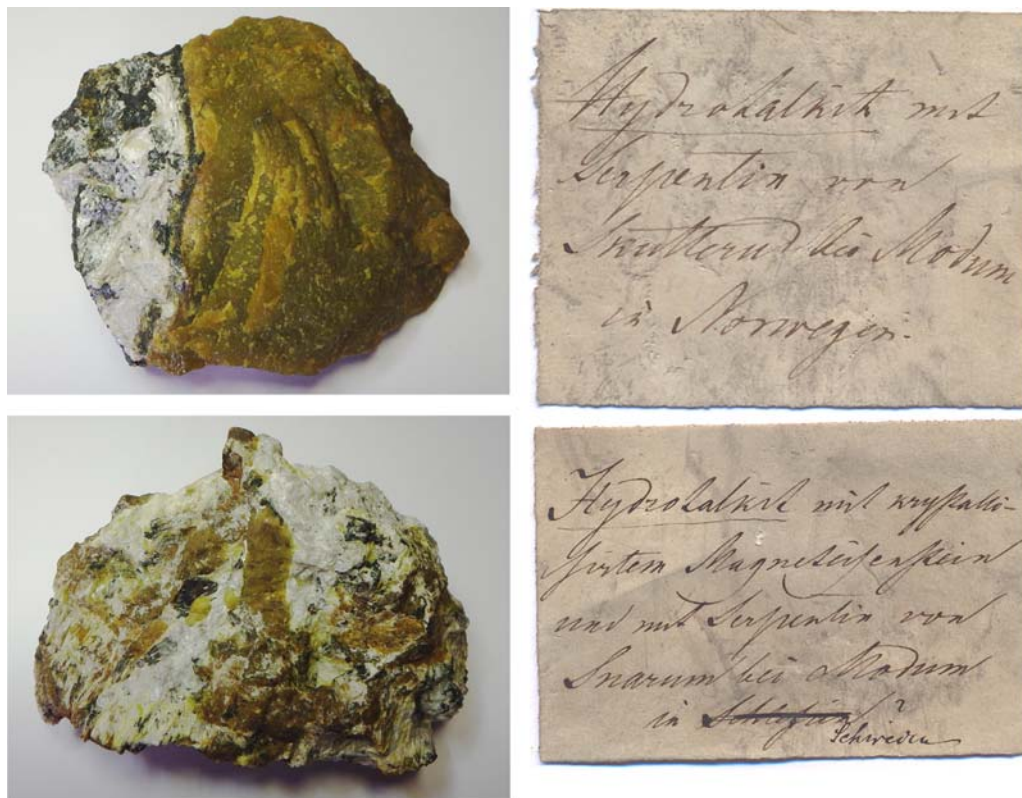 Hydrotalkit mit
Serpentin von
Skutterud bei Modum
in Norwegen.
Hydrotalkit mit krystalli-
sirtem Magneteisenstein
und mit Serpentin von
Snarum bei Modum
in Schlesien?
Schweden